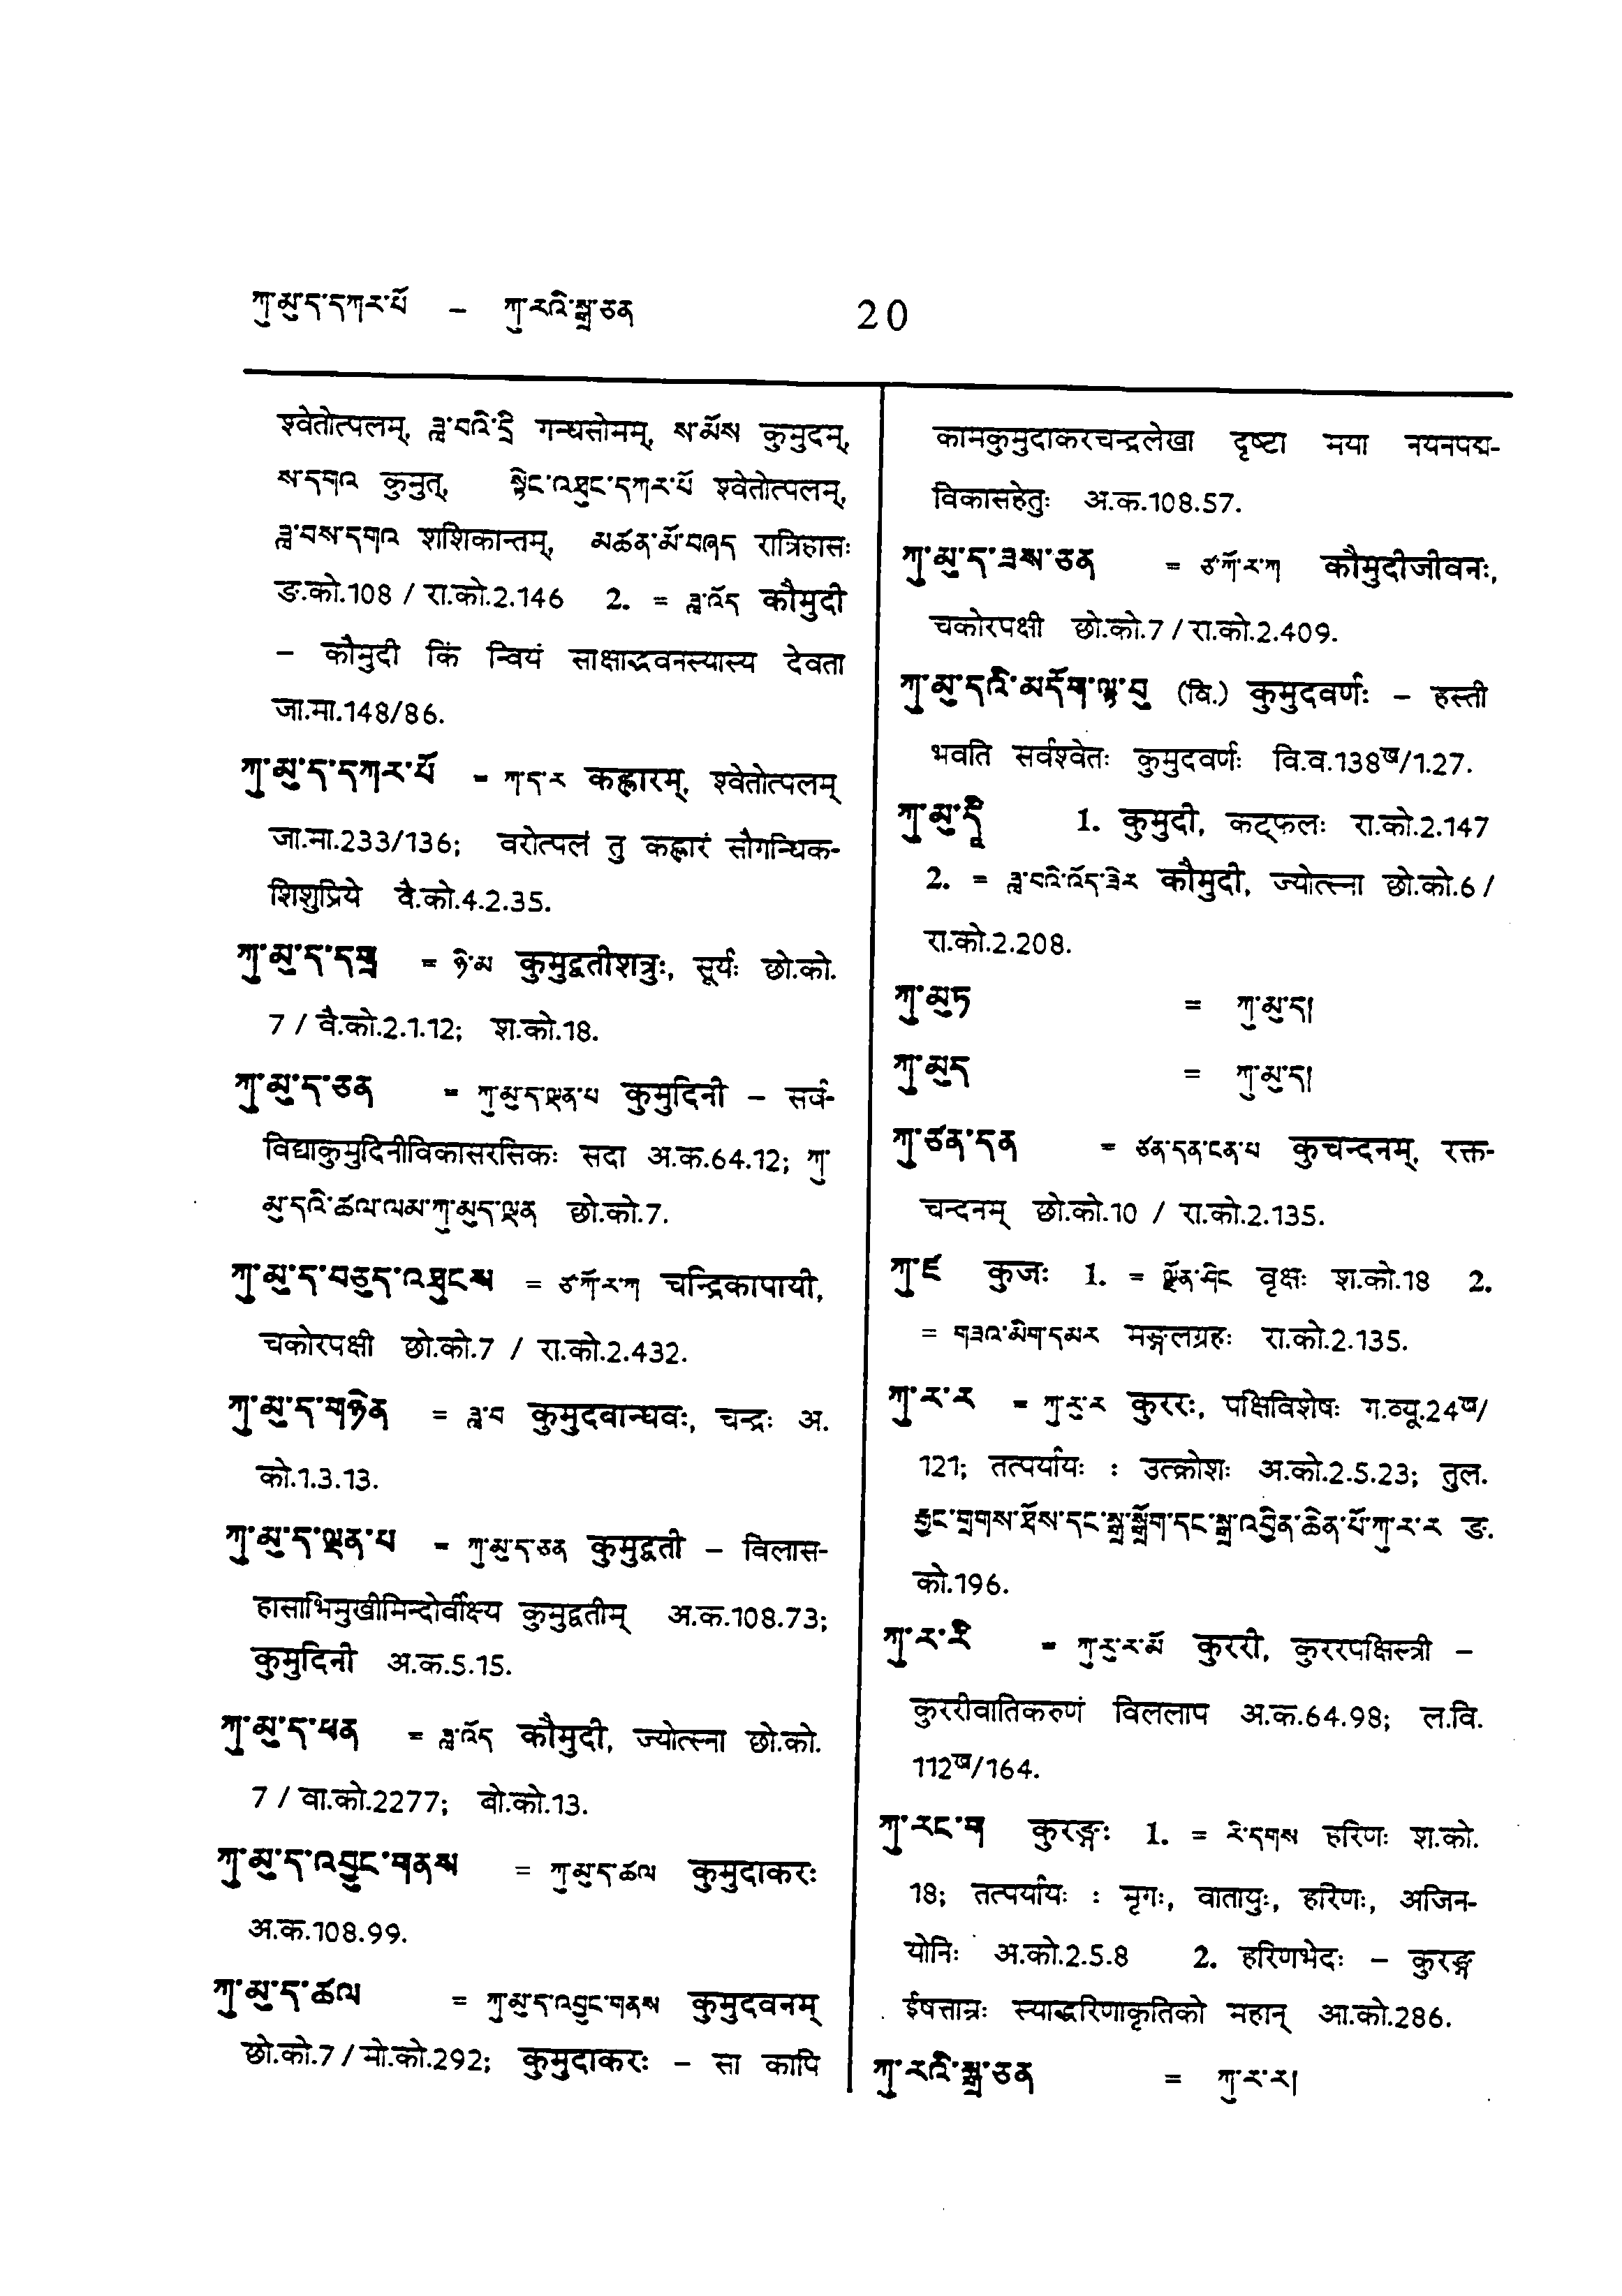 ཀུ་མུ་ད་དཀར་པོ – ཀུ་རའི་སྒྲ་ཅན 20
श्वेतोत्पलम्, ཟླ་བའི་དྲི गन्धसोमम्, ས་མོས कुमुदम्,
ས་དགའ कुमुत्, སྟེང་འཐུང་དཀར་པོ श्वेतोत्पलम्,
ཟླ་བས་དགའ शशिकान्तम्, མཚན་མོ་བཞད रात्रिहासः
ङ.को.108 / रा.को.2.146 2. = ཟླ་འོད कौमुदी
– कौमुदी किं न्वियं साक्षाद्भवनस्यास्य देवता
जा.मा.148/86.
ཀུ་མུ་ད་དཀར་པོ = ཀ་ད་ར कह्लारम्, श्वेतोत्पलम्
जा.मा.233/136; वरोत्पलं तु कह्लारं सौगन्धिक-
शिशुप्रिये वै.को.4.2.35.
ཀུ་མུ་ད་དགྲ = ཉི་མ कुमुद्वतीशत्रुः, सूर्यः छो.को.
7 / वै.को.2.1.12; श.को.18.
ཀུ་མུ་ད་ཅན = ཀུ་མུ་ད་ལྡན་པ कुमुदिनी – सर्व-
विद्याकुमुदिनीविकासरसिकः सदा अ.क.64.12; ཀུ་
མུ་དའི་ཚལ་ལམ་ཀུ་མུད་ལྡན छो.को.7.
ཀུ་མུ་ད་བཅུད་འཐུངས = ཙ་ཀོ་ར་ཀ चन्द्रिकापायी,
चकोरपक्षी छो.को.7 / रा.को.2.432.
ཀུ་མུ་ད་གཉེན = ཟླ་བ कुमुदबान्धवः, चन्द्रः अ.
को.1.3.13.
ཀུ་མུ་ད་ལྡན་པ = ཀུ་མུ་ད་ཅན कुमुद्वती – विलास-
हासाभिमुखीमिन्दोर्वीक्ष्य कुमुद्वतीम् अ.क.108.73;
कुमुदिनी अ.क.5.15.
ཀུ་མུ་ད་ཕན = ཟླ་འོད कौमुदी, ज्योत्स्ना छो.को.
7 / वा.को.2277; बो.को.13.
ཀུ་མུ་ད་འབྱུང་གནས = ཀུ་མུ་ད་ཚལ कुमुदाकरः
अ.क.108.99.
ཀུ་མུ་ད་ཚལ = ཀུ་མུ་ད་འབྱུང་གནས कुमुदवनम्
छो.को.7 / मो.को.292; कुमुदाकरः – सा कापि
कामकुमुदाकरचन्द्रलेखा दृष्टा मया नयनपद्म-
विकासहेतुः अ.क.108.57.
ཀུ་མུ་ད་ཟས་ཅན = ཙ་ཀོ་ར་ཀ कौमुदीजीवनः,
चकोरपक्षी छो.को.7 / रा.को.2.409.
ཀུ་མུ་དའི་མདོག་ལྟ་བུ (वि.) कुमुदवर्णः – हस्ती
भवति सर्वश्वेतः कुमुदवर्णः वि.व.138ख/1.27.
ཀུ་མུ་དཱི 1. कुमुदी, कट्फलः रा.को.2.147
2. = ཟླ་བའི་འོད་ཟེར कौमुदी, ज्योत्स्ना छो.को.6 /
रा.को.2.208.
ཀུ་མུཏ = ཀུ་མུ་ད།
ཀུ་མུད = ཀུ་མུ་ད།
ཀུ་ཙན་དན = ཙན་དན་ངན་པ कुचन्दनम्, रक्त-
चन्दनम् छो.को.10 / रा.को.2.135.
ཀུ་ཛ कुजः 1. = ལྗོན་ཤིང वृक्षः श.को.18 2.
= གཟའ་མིག་དམར मङ्गलग्रहः रा.को.2.135.
ཀུ་ར་ར = ཀུ་རུ་ར कुररः, पक्षिविशेषः ग.व्यू.24ख/
121; तत्पर्यायः : उत्क्रोशः अ.को.2.5.23; तुल.
རྒྱང་གྲགས་ཐོས་དང་སྒྲ་སྒྲོག་དང་སྒྲ་འབྱིན་ཆེན་པོ་ཀུ་ར་ར ङ.
को.196.
ཀུ་ར་རི = ཀུ་རུ་ར་མོ कुररी, कुररपक्षिस्त्री –
कुररीवातिकरुणं विललाप अ.क.64.98; ल.वि.
112ख/164.
ཀུ་རང་ག कुरङ्गः 1. = རི་དགས हरिणः श.को.
18; तत्पर्यायः : मृगः, वातायुः, हरिणः, अजिन-
योनिः अ.को.2.5.8 2. हरिणभेदः – कुरङ्ग
ईषत्ताम्रः स्याद्धरिणाकृतिको महान् आ.को.286.
ཀུ་རའི་སྒྲ་ཅན = ཀུ་ར་ར།